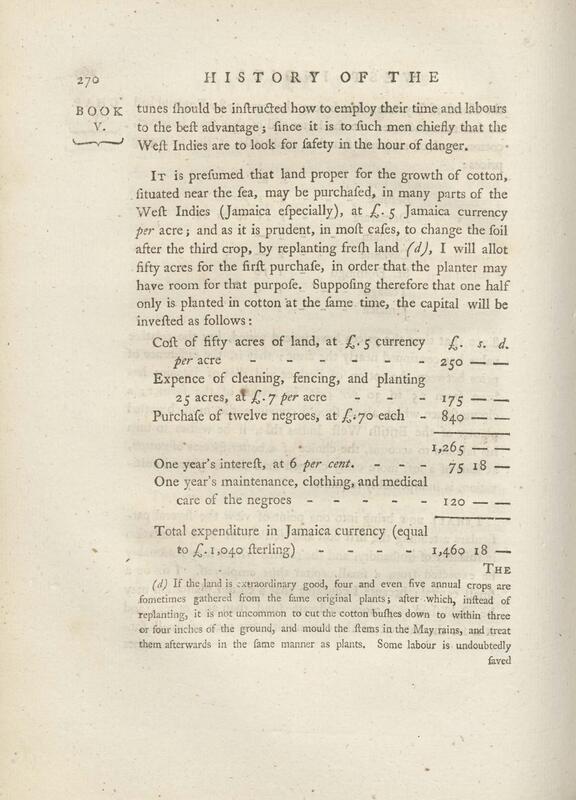 270 HISTORY OF THE
BOOK
V.
tunes ſhould be inſtructed how to employ their time and labours
to the beſt advantage; ſince it is to ſuch men chiefly that the
Weſt Indies are to look for ſafety in the hour of danger.
IT is preſumed that land proper for the growth of cotton,
ſituated near the ſea, may be purchaſed, in many parts of the
Weſt Indies (Jamaica eſpecially), at £. 5 Jamaica currency
per acre; and as it is prudent, in moſt caſes, to change the ſoil
after the third crop, by replanting freſh land (d), I will allot
fifty acres for the firſt purchaſe, in order that the planter may
have room for that purpoſe. Suppoſing therefore that one half
only is planted in cotton at the ſame time, the capital will be
inveſted as follows:
Coſt of fifty acres of land, at £. 5 currency £. s. d.
per acre - - - - - - 250 — —
Expence of cleaning, fencing, and planting
25 acres, at £. 7 per acre - - - 175 — —
Purchaſe of twelve negroes, at £. 70 each - 840 — —
1,265 — —
One year's intereſt, at 6 per cent. - - - 75 18 —
One year's maintenance, clothing, and medical
care of the negroes - - - - - 120 — —
Total expenditure in Jamaica currency (equal
to £. 1,040 ſterling) - - - - 1,460 18 —
THE
(d) If the land is extraordinary good, four and even five annual crops are
ſometimes gathered from the ſame original plants; after which, inſtead of
replanting, it is not uncommon to cut the cotton buſhes down to within three
or four inches of the ground, and mould the ſtems in the May rains, and treat
them afterwards in the ſame manner as plants. Some labour is undoubtedly
ſaved